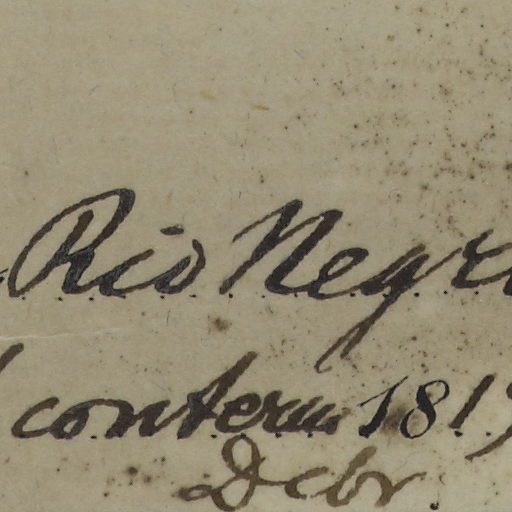 Rio Negr
conterm 1819
Debr.